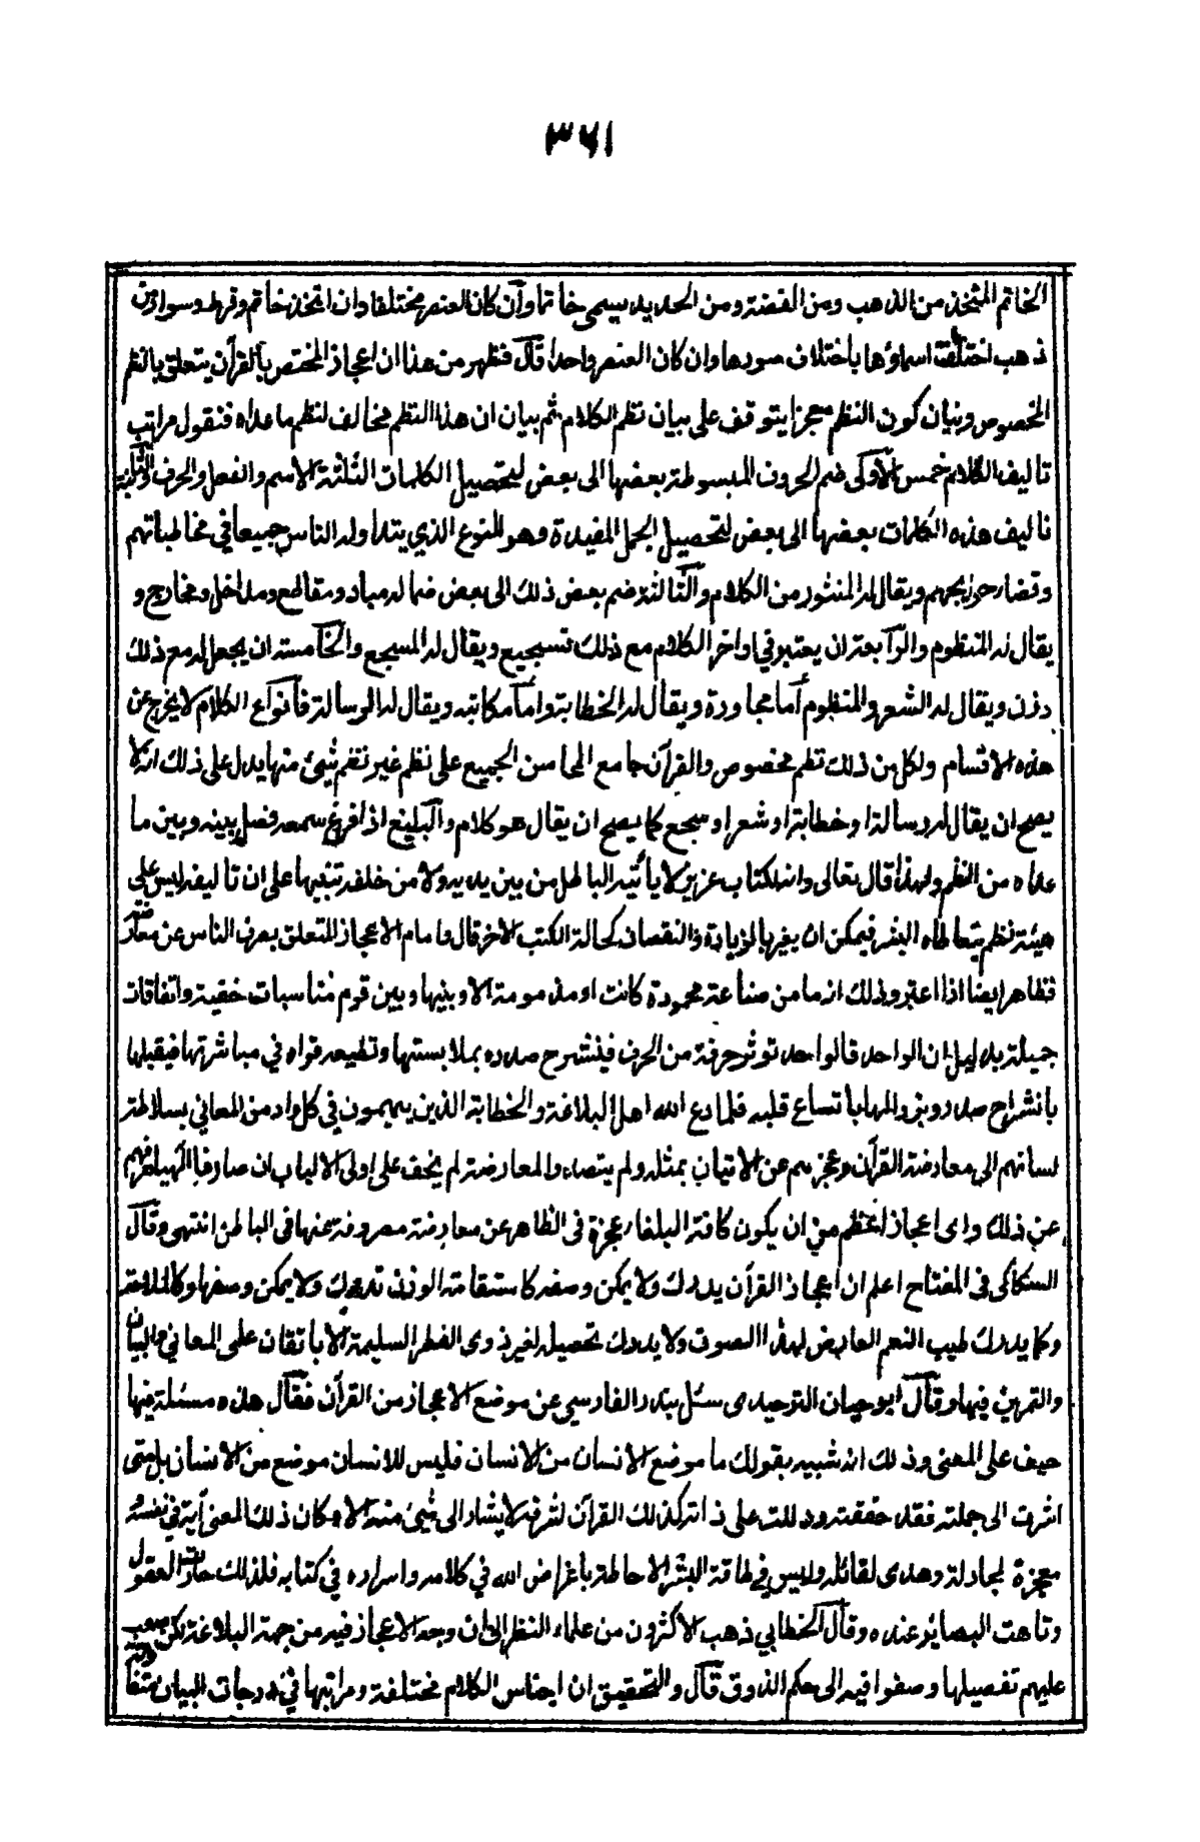 ٣٦١
الخاتم المتخذ من الذهب ومن الفضة ومن الحديد يسمى خاتما وان كان العنصر مختلفا وان اتخذ خاتم وقرط وسوار من
ذهب اختلفت اسماؤها باختلاف صورها وان كان العنصر واحدا قال فظهر من هذا ان اعجاز المختص بالقرآن يتعلق بالنظم
المخصوص وبيان كون النظم معجزا يتوقف على بيان نظم الكلام ثم بيان ان هذا النظم مخالف لنظم ما عداه فنقول مراتب
تاليف الكلام خمس الأولى ضم الحروف المبسوطة بعضها الى بعض لتحصيل الكلمات الثلثة الاسم والفعل والحرف والثانية
تاليف هذه الكلمات بعضها الى بعض لتحصيل الجمل المفيدة وهو النوع الذي يتداوله الناس جميعا في مخاطباتهم
وقضاء حوايجهم ويقال له المنثور من الكلام والثالثة ضم بعض ذلك الى بعض ضما له مباد ومقاطع ومداخل ومخارج و
يقال له المنظوم والرابعة ان يعتبر في اواخر الكلام مع ذلك تسجيع ويقال له المسجع والخامسة ان يجعل له مع ذلك
وزن ويقال له الشعر والمنظوم أما محاورة ويقال له الخطابة واما مكاتبة ويقال له الرسالة فأنواع الكلام لا يخرج عن
هذه الاقسام ولكل من ذلك نظم مخصوص والقرآن جامع المحاسن الجميع على نظم غير نظم شيئ منها يدل على ذلك انه لا
يصح ان يقال له رسالة او خطابة او شعر او سجع كما يصح ان يقال هو كلام والبليغ اذا قرع سمعه فصل بينه وبين ما
عداه من النظم ولهذا قال تعالى وانه لكتاب عزيز لا يأتيه الباطل من بين يديه ولا من خلفه تنبيها على ان تاليفه ليس على
هيئة نظم يتعاطاه البشر فيمكن ان يغير بالزيادة والنقصان كحالة الكتب الاخر قال واما الاعجاز المتعلق بصرف الناس عن معارضته
فظاهر ايضا اذا اعتبر وذلك انه ما من صناعة محمودة كانت او مذمومة الا وبينها وبين قوم مناسبات خفية واتفاقات
جميلة بدليل ان الواحد فالواحد يوثر حرفة من الحرف فينشرح صدره بملابستها وتطيعه قواه في مباشرتها فيقبلها
بانشراح صدر ويزاولها باتساع قلبه فلما دع الله اهل البلاغة والخطابة الذين يهيمون في كل واد من المعاني بسلاطة
لسانهم الى معارضة القرآن وعجزهم عن الاتيان بمثله ولم يتصدوا لمعارضته لم يخف على اولى الالباب ان صارفا الهيا صرفهم
عن ذلك واى اعجاز اعظم من ان يكون كافة البلغاء عجزة فى الظاهر عن معارضته مصروفة عنها فى الباطن انتهى وقال
السكاكى فى المفتاح اعلم ان اعجاز القرآن يدرك ولا يمكن وصفه كاستقامة الوزن تدرك ولا يمكن وصفها وكالملاحة
وكما يدرك طيب النغم العارض لهذا الصوت ولا يدرك تحصيله لغير ذوى الفطر السليمة الا باتقان على المعاني والبيان
والتمرين فيها وقال ابو حيان التوحيدى سئل بندار الفارسي عن موضع الاعجاز من القرآن فقال هذه مسئلة فيها
حيف على المعنى وذلك انه شبيه بقولك ما موضع الانسان من الانسان فليس للانسان موضع من الانسان بل متى
اشرت الى جملته فقد حققته ودللت على ذاته كذلك القرآن لشرفه لا يشار الى شيئ منه الا وكان ذلك المعنى أية في نفسه و
معجزة لمحاوله وهدى لقائله وليس في طاقة البشر الاحاطة باغراض الله في كلامه واسراره في كتابه فلذلك حارت العقول
وتاهت البصائر عنده وقال الخطابي ذهب الاكثرون من علماء النظر الى ان وجه الاعجاز فيه من جهة البلاغة لكن صعب
عليهم تفصيلها وصغوا فيه الى حكم الذوق قال والتحقيق ان اجناس الكلام مختلفة ومراتبها في درجات البيان متفاوتة